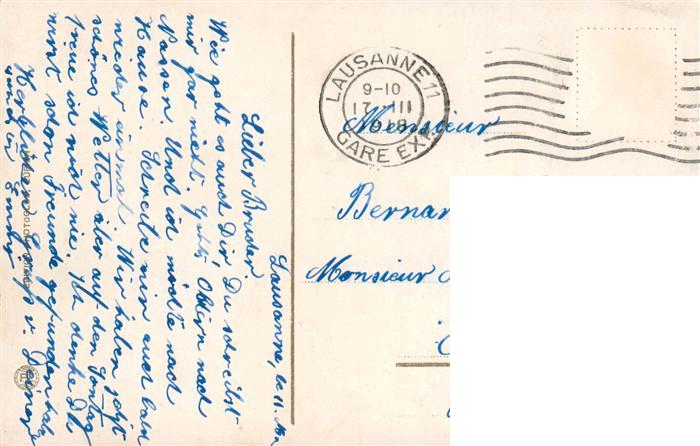 Lausanne, le 11. Mai
Lieber Bruder.
Wie geht es auch Dir, Du schreibst
mir gar nicht. Geht Obern nach
Nassen. Und ich möchte nach
Hause. Schreibe mir auch bald
wieder einmal. Wir haben jetzt
schönes Wetter aber auf den Sontag
freue ich mich nie. Ich denke Du
wirst schon Freunde gefunden haben
Herzlichen Gruss v. Deiner
LAUSANNE 11
9-10
GARE EXP.
Monsieur
Bernar
Monsieur